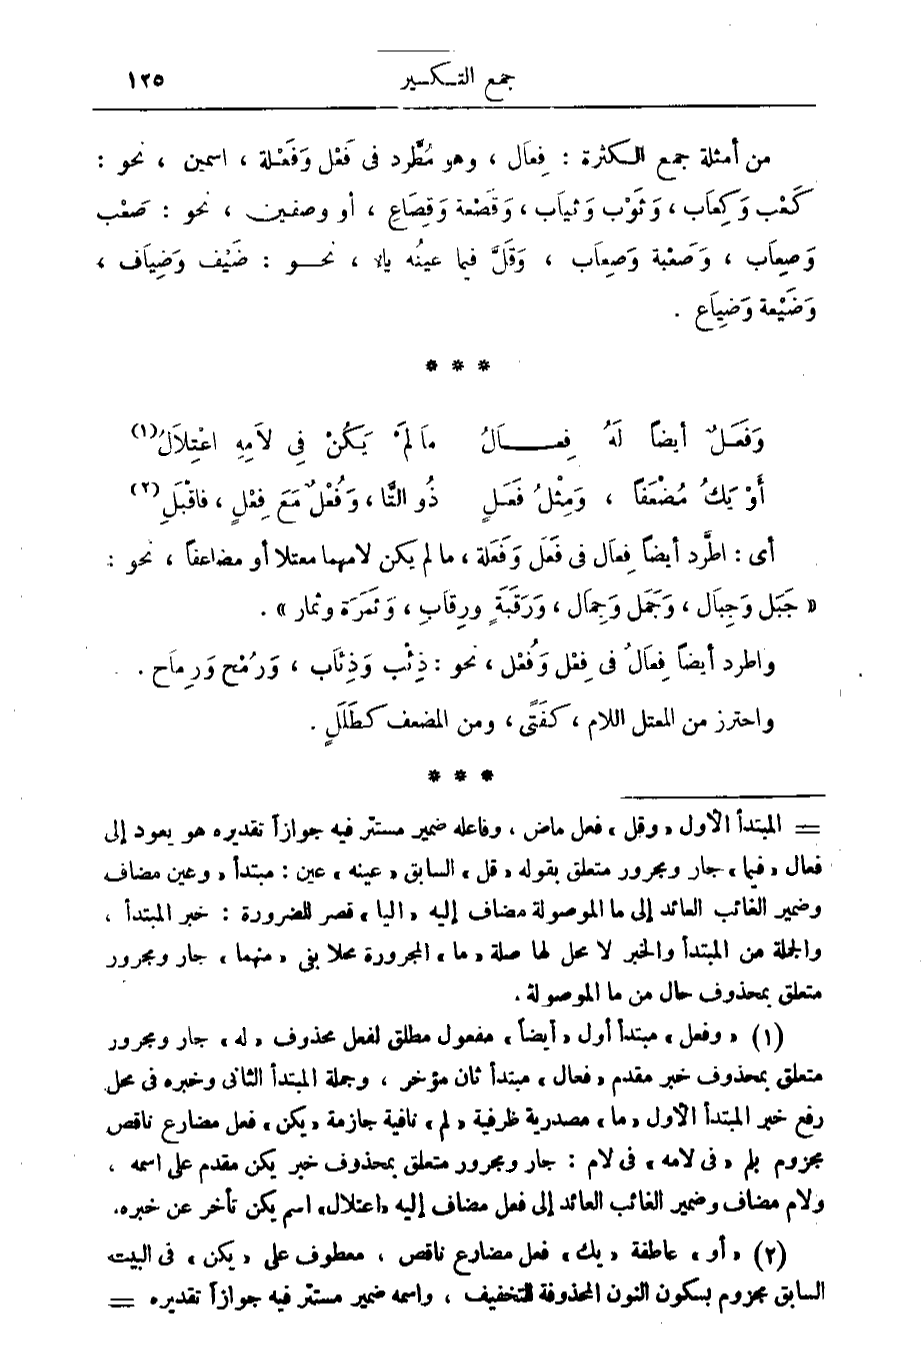 جمع التكسير ١٢٥
من أمثلة جمع الكثرة : فِعَال ، وهو مُطَّرد فى فَعْل وَفَعْلة ، اسمين ، نحو :
كَعْب وَكِعاَب ، وَثَوْب وَثياَب ، وَقَصْعة وَقِصَاعِ ، أو وصفين ، نحو : صَعْب
وَصِعاَب ، وَصَعْبة وَصِعاَب ، وَقَلَّ فيما عينُه ياء ، نحو : ضَيْف وَضِيَاف ،
وَضَيْعة وَضِيَاع .
* * *
وَفَعَلٌ أيضاً لَهُ فِعَالُ مَا لَمْ يَكُنْ فِى لاَمِهِ اعْتِلاَلُ (١)
أَوْ يَكُ مُضْعَفاً ، وَمِثْلُ فَعَلِ ذُو التَّا ، وَفُعْلٌ مَعَ فِعْلٍ ، فاقْبَلِ (٢)
أى : اطَّرد أيضاً فِعاَل فى فَعَل وَفَعَلة ، ما لم يكن لامهما معتلا أو مضاعفاً ، نحو :
« جَبَل وَجِبَال ، وَجَمَل وَجِمَال ، وَرَقَبَةٍ ورِقَاب ، وَثَمَرَة وثمار » .
واطرد أيضاً فِعَالُ فى فِعْل وَفُعْل ، نحو : ذِئْب وَذِئَاب ، وَرُمْح وَرِمَاح .
واحترز من المعتل اللام ، كَفَتًى ، ومن المضعف كَطَلَلٍ .
* * *
= المبتدأ الأول «وقل» فعل ماض ، وفاعله ضمير مستتر فيه جوازاً تقديره هو يعود إلى
فعال «فيما» جار ومجرور متعلق بقوله «قل» السابق «عينه» عين : مبتدأ ، وعين مضاف
وضمير الغائب العائد إلى ما الموصولة مضاف إليه «اليا» قصر للضرورة : خبر المبتدأ ،
والجملة من المبتدأ والخبر لا محل لها صلة «ما» المجرورة محلا بفى «منهما» جار ومجرور
متعلق بمحذوف حال من ما الموصولة .
(١) «وفعل» مبتدأ أول «أيضاً» مفعول مطلق لفعل محذوف «له» جار ومجرور
متعلق بمحذوف خبر مقدم «فعال» مبتدأ ثان مؤخر ، وجملة المبتدأ الثانى وخبره فى محل
رفع خبر المبتدأ الأول «ما» مصدرية ظرفية «لم» نافية جازمة «يكن» فعل مضارع ناقص
مجزوم بلم «فى لامه» فى لام : جار ومجرور متعلق بمحذوف خبر يكن مقدم على اسمه ،
ولام مضاف وضمير الغائب العائد إلى فعل مضاف إليه «اعتلال» اسم يكن تأخر عن خبره.
(٢) «أو» عاطفة «يك» فعل مضارع ناقص ، معطوف على «يكن» فى البيت
السابق مجزوم بسكون النون المحذوفة للتخفيف ، واسمه ضمير مستتر فيه جوازاً تقديره =